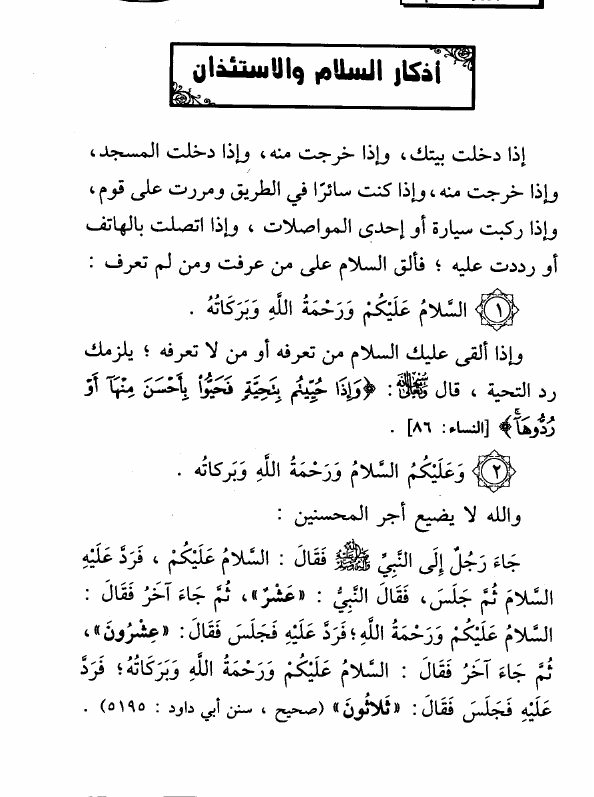 أذكار السلام والاستئذان
إذا دخلت بيتك، وإذا خرجت منه، وإذا دخلت المسجد،
وإذا خرجت منه، وإذا كنت سائرًا في الطريق ومررت على قوم،
وإذا ركبت سيارة أو إحدى المواصلات ، وإذا اتصلت بالهاتف
أو رددت عليه ؛ فألق السلام على من عرفت ومن لم تعرف :
١ السَّلامُ عَلَيْكُمْ وَرَحْمَةُ اللَّهِ وَبَرَكَاتُهُ .
وإذا ألقى عليك السلام من تعرفه أو من لا تعرفه ؛ يلزمك
رد التحية ، قال : ﴿وَإِذَا حُيِّيتُم بِتَحِيَّةٍ فَحَيُّوا۟ بِأَحْسَنَ مِنْهَآ أَوْ
رُدُّوهَآۗ﴾ [النساء: ٨٦] .
٢ وَعَلَيْكُمُ السَّلامُ وَرَحْمَةُ اللَّهِ وَبَركاتُه .
والله لا يضيع أجر المحسنين :
جَاءَ رَجُلٌ إِلَى النَّبِيِّ ﷺ فَقَالَ : السَّلامُ عَلَيْكُمْ ، فَرَدَّ عَلَيْهِ
السَّلامَ ثُمَّ جَلَسَ، فَقَالَ النَّبِيُّ : «عَشْرٌ»، ثُمَّ جَاءَ آخَرُ فَقَالَ :
السَّلامُ عَلَيْكُمْ وَرَحْمَةُ اللَّهِ؛ فَرَدَّ عَلَيْهِ فَجَلَسَ فَقَالَ: «عِشْرُونَ»،
ثُمَّ جَاءَ آخَرُ فَقَالَ : السَّلامُ عَلَيْكُمْ وَرَحْمَةُ اللَّهِ وَبَرَكَاتُهُ؛ فَرَدَّ
عَلَيْهِ فَجَلَسَ فَقَالَ: «ثَلاثُونَ» (صحيح ، سنن أبي داود : ٥١٩٥) .